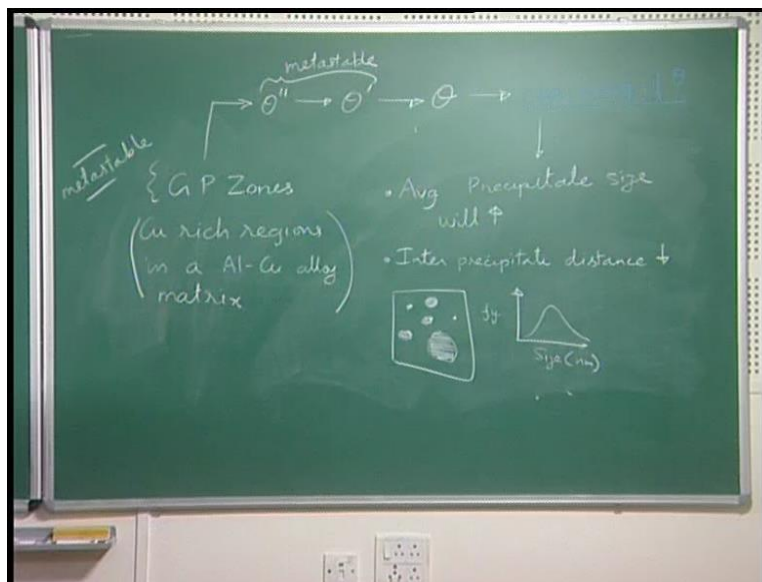 metastable
θ'' → θ' → θ →
metastable
{ G P Zones
(Cu rich regions
in a Al-Cu alloy
matrix)
• Avg Precipitate size
will ↑
• Inter precipitate distance ↓
fy
Size (nm)